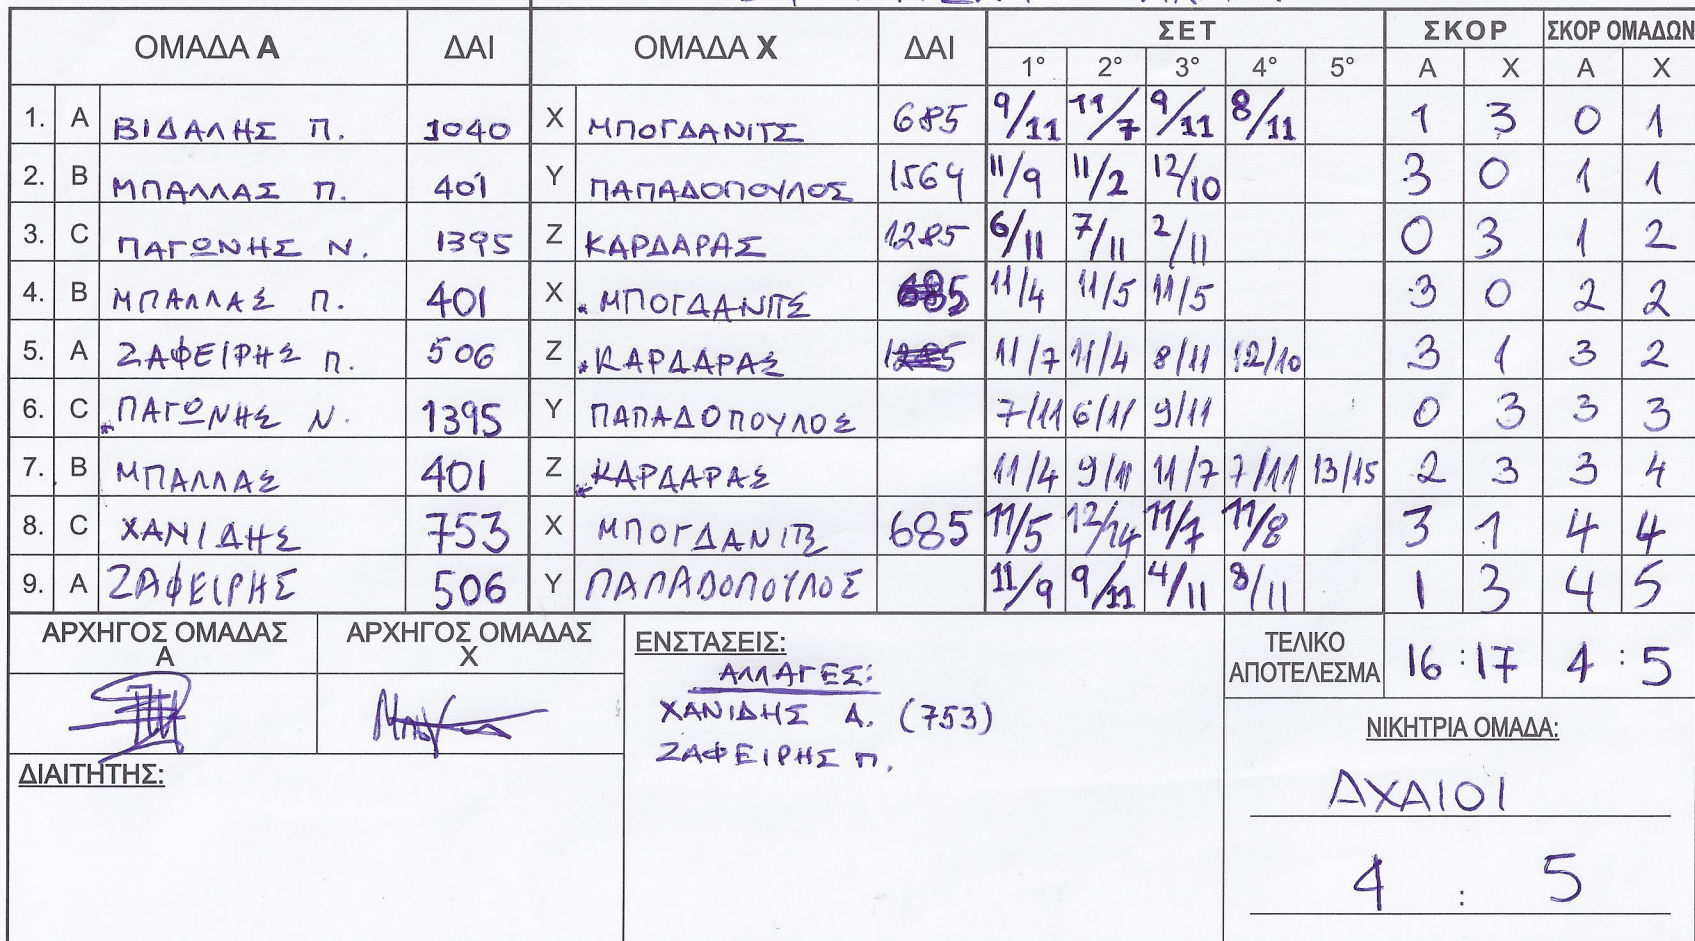 ΟΜΑΔΑ Α ΔΑΙ ΟΜΑΔΑ Χ ΔΑΙ ΣΕΤ ΣΚΟΡ ΣΚΟΡ ΟΜΑΔΩΝ
1° 2° 3° 4° 5° Α Χ Α Χ
1. Α ΒΙΔΑΛΗΣ Π. 1040 Χ ΜΠΟΓΔΑΝΙΤΣ 685 9/11 11/7 9/11 8/11 1 3 0 1
2. Β ΜΠΑΛΛΑΣ Π. 401 Υ ΠΑΠΑΔΟΠΟΥΛΟΣ 1564 11/9 11/2 12/10 3 0 1 1
3. C ΠΑΓΩΝΗΣ Ν. 1395 Ζ ΚΑΡΔΑΡΑΣ 1285 6/11 7/11 2/11 0 3 1 2
4. Β ΜΠΑΛΛΑΣ Π. 401 Χ ΜΠΟΓΔΑΝΙΤΣ 685 11/4 11/5 11/5 3 0 2 2
5. Α ΖΑΦΕΙΡΗΣ Π. 506 Ζ ΚΑΡΔΑΡΑΣ 1285 11/7 11/4 8/11 12/10 3 1 3 2
6. C ΠΑΓΩΝΗΣ Ν. 1395 Υ ΠΑΠΑΔΟΠΟΥΛΟΣ 7/11 6/11 9/11 0 3 3 3
7. Β ΜΠΑΛΛΑΣ 401 Ζ ΚΑΡΔΑΡΑΣ 11/4 9/11 11/7 7/11 13/15 2 3 3 4
8. C ΧΑΝΙΔΗΣ 753 Χ ΜΠΟΓΔΑΝΙΤΣ 685 11/5 12/14 11/7 11/8 3 1 4 4
9. Α ΖΑΦΕΙΡΗΣ 506 Υ ΠΑΠΑΔΟΠΟΥΛΟΣ 11/9 9/11 4/11 8/11 1 3 4 5
ΑΡΧΗΓΟΣ ΟΜΑΔΑΣ Α
ΑΡΧΗΓΟΣ ΟΜΑΔΑΣ Χ
ΔΙΑΙΤΗΤΗΣ:
ΕΝΣΤΑΣΕΙΣ:
ΑΛΛΑΓΕΣ:
ΧΑΝΙΔΗΣ Α. (753)
ΖΑΦΕΙΡΗΣ Π.
ΤΕΛΙΚΟ ΑΠΟΤΕΛΕΣΜΑ 16 : 17 4 : 5
ΝΙΚΗΤΡΙΑ ΟΜΑΔΑ:
ΑΧΑΙΟΙ
4 : 5